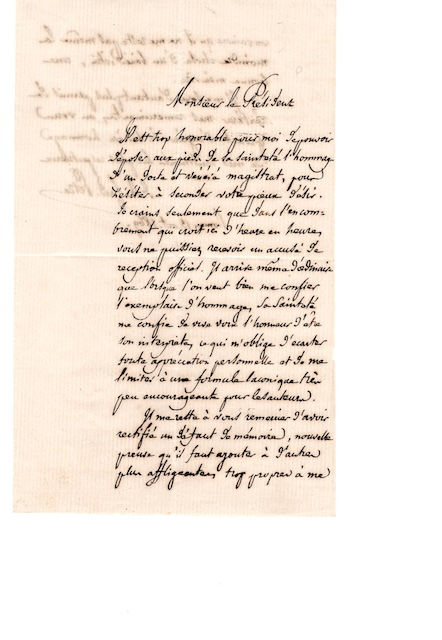 Monsieur le Président
Il est trop honorable pour moi de pouvoir
déposer aux pieds de la sainteté l'hommage
d'un docte et vénéré magistrat, pour
hésiter à seconder votre pieux désir.
Je crains seulement que dans l'encom-
brement qui croît ici d'heure en heure,
vous ne puissiez recevoir un accusé de
reception officiel. Il arrive même d'ordinaire
que lorsque l'on veut bien me confier
l'exemplaire d'hommage, sa Sainteté
me confie de vive voix l'honneur d'être
son interprète, ce qui m'oblige d'écarter
toute appréciation personnelle et de me
limiter à une formule laconique très
peu encourageante pour les auteurs.
Il me reste à vous remercier d'avoir
rectifié un défaut de mémoire, nouvelle
preuve qu'il faut ajouter à d'autres
plus affligeantes, trop propres à me